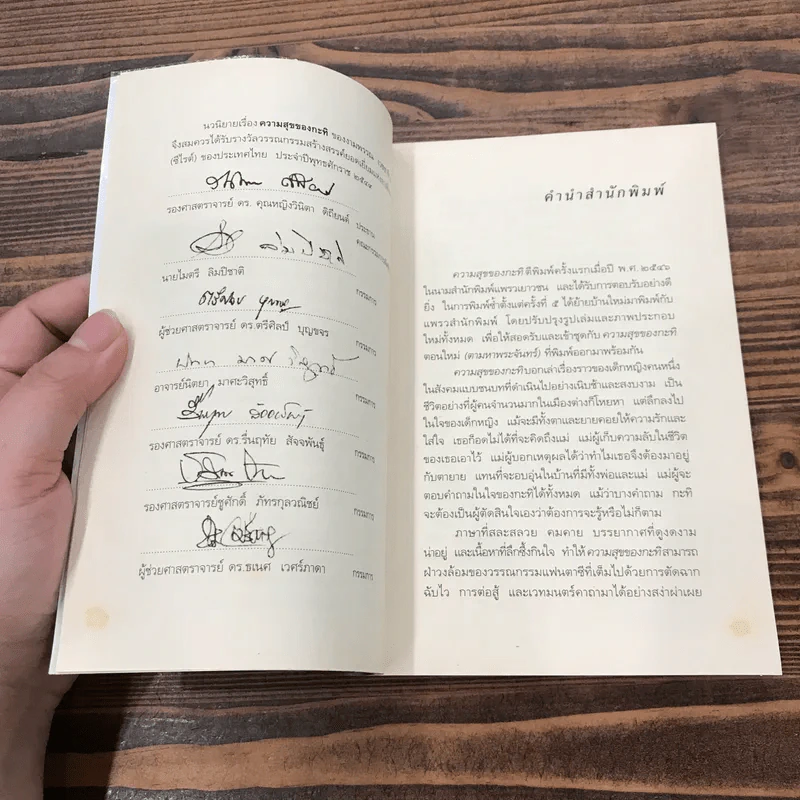 นวนิยายเรื่อง ความสุขของกะทิ ของงามพรรณ
จึงสมควรได้รับรางวัลวรรณกรรมสร้างสรรค์ยอดเยี่ยมแห่งอาเซียน
(ซีไรต์) ของประเทศไทย ประจำปีพุทธศักราช ๒๕๔๙
รองศาสตราจารย์ ดร. คุณหญิงวินิตา ดิถียนต์ ประธาน
คณะกรรมการ
นายไมตรี ลิมปิชาติ กรรมการ
ผู้ช่วยศาสตราจารย์ ดร.ตรีศิลป์ บุญขจร กรรมการ
อาจารย์นิตยา มาศะวิสุทธิ์ กรรมการ
รองศาสตราจารย์ ดร.รื่นฤทัย สัจจพันธุ์ กรรมการ
รองศาสตราจารย์ชูศักดิ์ ภัทรกุลวณิชย์ กรรมการ
ผู้ช่วยศาสตราจารย์ ดร.ธเนศ เวศร์ภาดา กรรมการ
คำนำสำนักพิมพ์
ความสุขของกะทิ ตีพิมพ์ครั้งแรกเมื่อปี พ.ศ. ๒๕๔๖
ในนามสำนักพิมพ์แพรวเยาวชน และได้รับการตอบรับอย่างดี
ยิ่ง ในการพิมพ์ซ้ำตั้งแต่ครั้งที่ ๕ ได้ย้ายบ้านใหม่มาพิมพ์กับ
แพรวสำนักพิมพ์ โดยปรับปรุงรูปเล่มและภาพประกอบ
ใหม่ทั้งหมด เพื่อให้สอดรับและเข้าชุดกับ ความสุขของกะทิ
ตอนใหม่ (ตามหาพระจันทร์) ที่พิมพ์ออกมาพร้อมกัน
ความสุขของกะทิบอกเล่าเรื่องราวของเด็กหญิงคนหนึ่ง
ในสังคมแบบชนบทที่ดำเนินไปอย่างเนิบช้าและสงบงาม เป็น
ชีวิตอย่างที่ผู้คนจำนวนมากในเมืองต่างก็โหยหา แต่ลึกลงไป
ในใจของเด็กหญิง แม้จะมีทั้งตาและยายคอยให้ความรักและ
ใส่ใจ เธอก็อดไม่ได้ที่จะคิดถึงแม่ แม่ผู้เก็บความลับในชีวิต
ของเธอเอาไว้ แม่ผู้บอกเหตุผลได้ว่าทำไมเธอจึงต้องมาอยู่
กับตายาย แทนที่จะอบอุ่นในบ้านที่มีทั้งพ่อและแม่ แม่ผู้จะ
ตอบคำถามในใจของกะทิได้ทั้งหมด แม้ว่าบางคำถาม กะทิ
จะต้องเป็นผู้ตัดสินใจเองว่าต้องการจะรู้หรือไม่ก็ตาม
ภาษาที่สละสลวย คมคาย บรรยากาศที่ดูงดงาม
น่าอยู่ และเนื้อหาที่ลึกซึ้งกินใจ ทำให้ ความสุขของกะทิ สามารถ
ฝ่าวงล้อมของวรรณกรรมแฟนตาซีที่เต็มไปด้วยการตัดฉาก
ฉับไว การต่อสู้ และเวทมนตร์คาถามาได้อย่างสง่าผ่าเผย